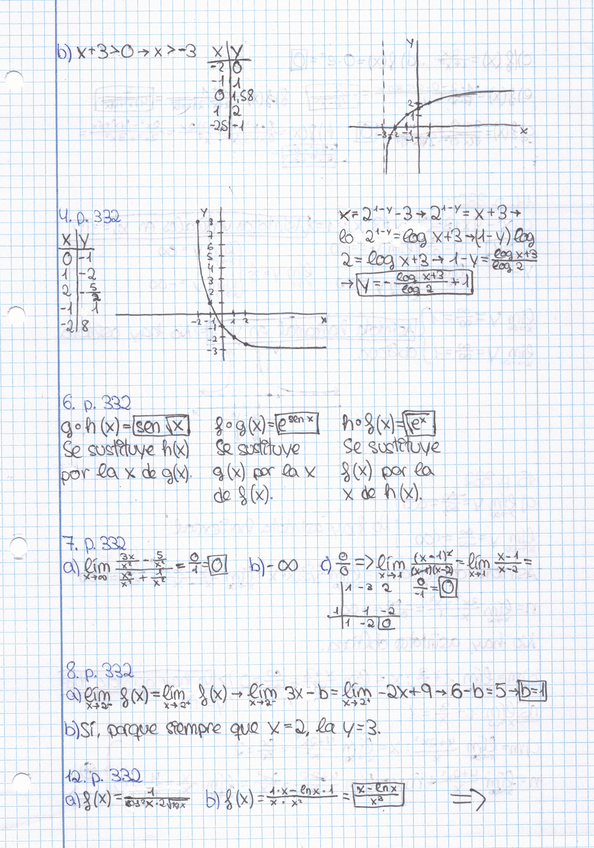 b) x+3>0→x>-3
x | y
-2 | 0
-1 | 1
0 | 1,58
1 | 2
-2,5 | -1
Y
2
1
-3 -2 -1 1 x
4. p. 332
x | y
0 | -1
1 | -2
2 | -5/2
-1 | 1
-2 | 8
Y
8
7
6
5
4
3
2
1
-2 -1 1 2 x
-1
-2
-3
x=2^(1-y)-3→2^(1-y)=x+3→
lo 2^(1-y)=log x+3→(1-y)log
2=log x+3→1-y=(log x+3)/(log 2)
→ y=-(log x+3)/(log 2)+1
6. p. 332
g∘h(x)=sen √x
Se sustituye h(x)
por la x de g(x).
f∘g(x)=e^(sen x)
Se sustituye
g(x) por la x
de f(x).
h∘f(x)=√(e^x)
Se sustituye
f(x) por la
x de h(x).
7. p. 332
a) lím x→∞ (3x/x² - 5/x²)/(x²/x² + 1/x²) = 0/1 = 0 b) -∞ c) 0/0 => lím x→1 (x-1)²/((x-1)(x-2)) = lím x→1 (x-1)/(x-2) =
0/-1 = 0
1 -3 2
1 | 1 -2
1 -2 0
8. p. 332
a) lím x→2⁻ f(x)=lím x→2⁺ f(x)→lím x→2⁻ 3x-b=lím x→2⁺ -2x+9→6-b=5→b=1
b) Sí, porque siempre que x=2, la y=3.
12. p. 332
a) f(x)=1/(cos²x·2√tgx) b) f(x)=(1·x-lnx·1)/(x·x²)=(x-lnx)/x³ =>